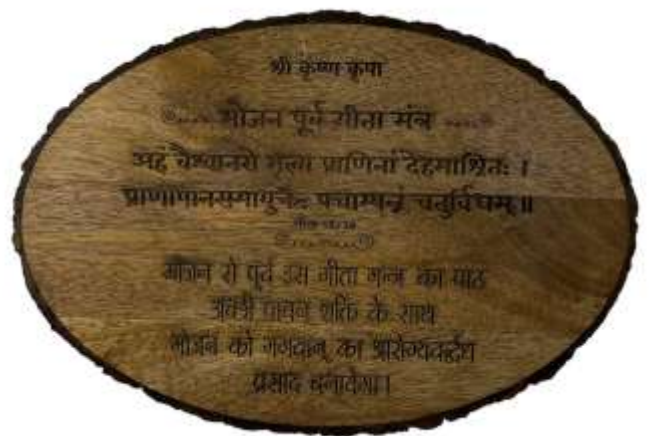 श्री कृष्ण कृपा
भोजन पूर्व गीता मंत्र
अहं वैश्वानरो भूत्वा प्राणिनां देहमाश्रितः ।
प्राणापानसमायुक्तः पचाम्यन्नं चतुर्विधम् ॥
गीता 15/14
भोजन से पूर्व इस गीता मन्त्र का पाठ
पाचन शक्ति के साथ
भोजन को भगवान् का आरोग्यवर्द्धक
प्रसाद बनायेगा।